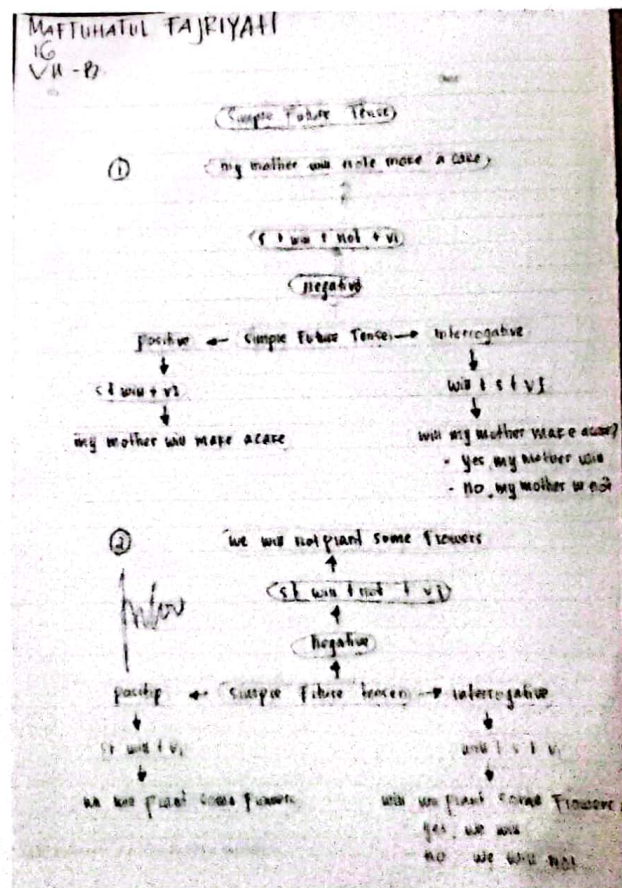 MAFTUHATUL FAJRIYAH
16
VII - B
Simple Future Tense
① my mother will note make a cake
s + will + not + v1
Negative
positive ← simple Future Tense → Interrogative
s + will + v1 will + s + v1
my mother will make a cake will my mother make a cake?
- Yes, my mother will
- No, my mother w not
② we will not plant some flowers
s + will + not + v1
Negative
positip ← Simple Future tense → Interrogative
s + will + v1 will + s + v1
we plant some flowers will we plant some Flowers
Yes, we will
- no we will not